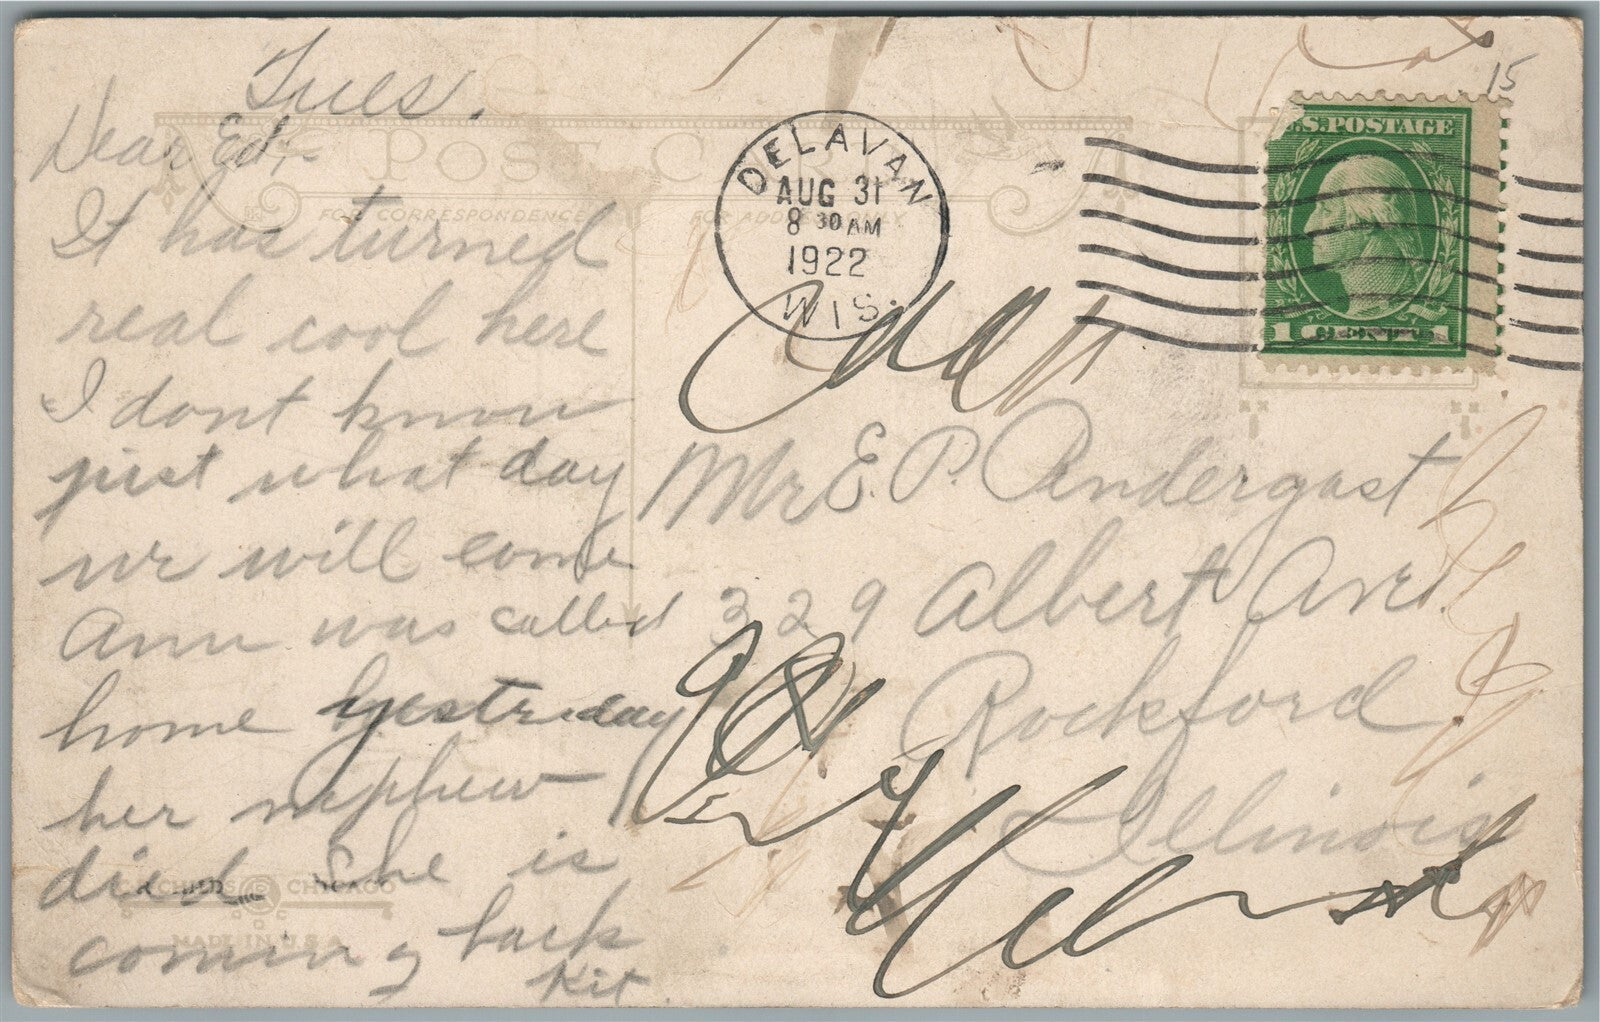 15
Tues.
Dear Ed:-
It has turned
real cool here
I dont know
just what day
we will come
Ann was called
home yesterday
her nephew
died She is
coming back
Kit.
POST CARD
FOR CORRESPONDENCE
FOR ADDRESS ONLY
DELAVAN
AUG 31
8 30 AM
1922
WIS.
U.S. POSTAGE
1 CENT 1
Mr E. P. Andergast
329 Albert Ave.
Rockford
Illinois
CHILDS CHICAGO
MADE IN U.S.A.